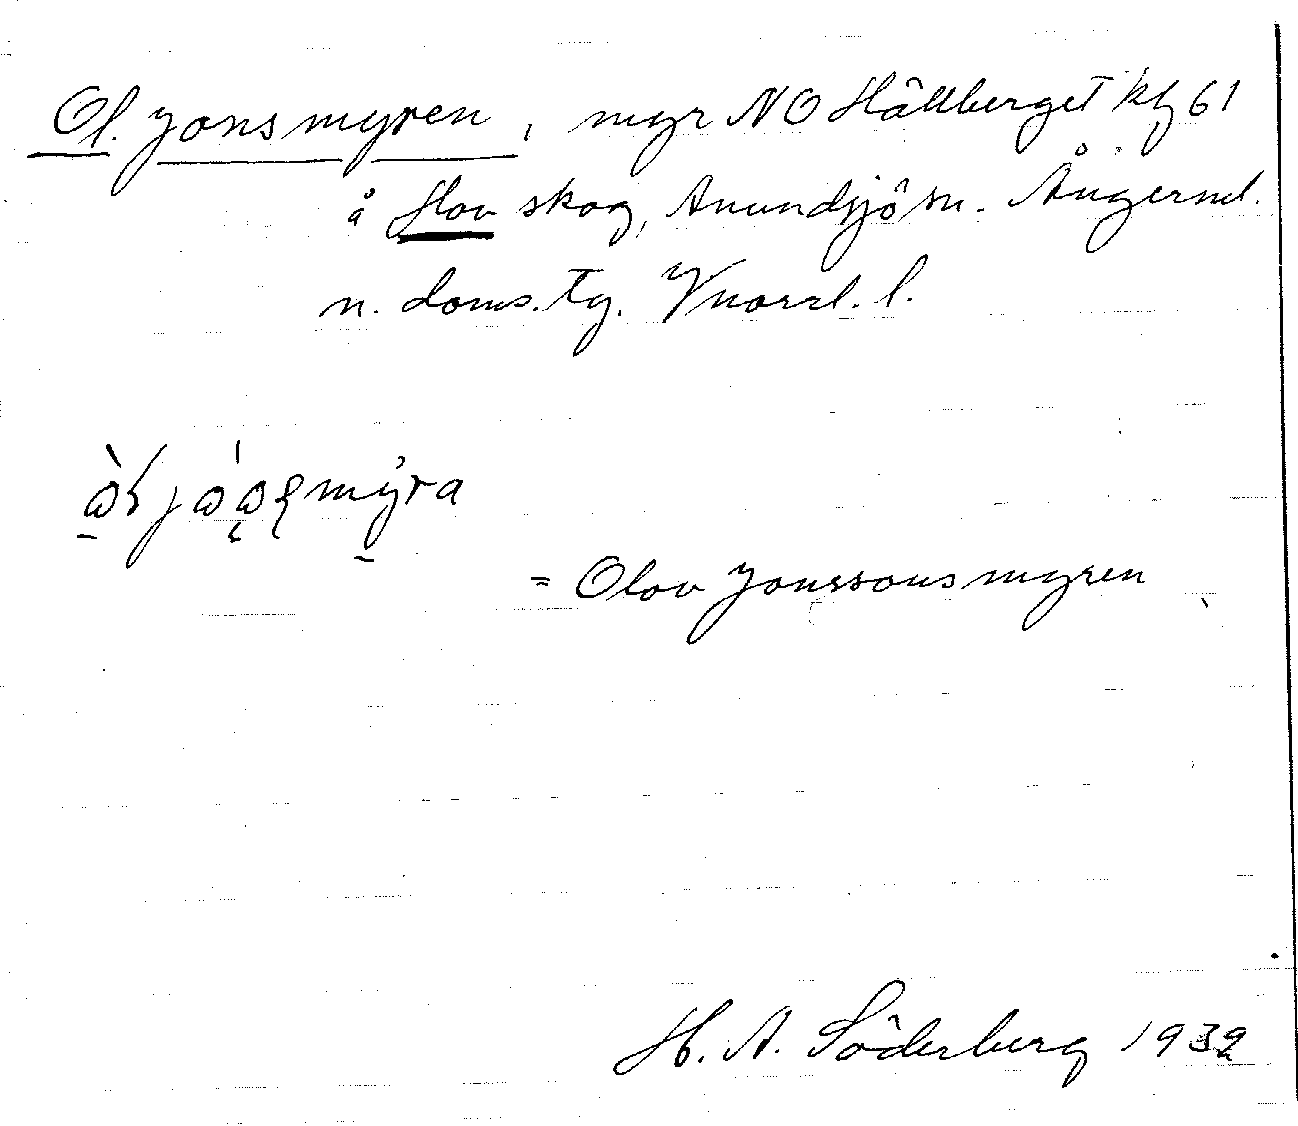 Ol. Jonsmyren, myr NO Hällberget kfg 61
å Hov skog, Anundsjö sn. Ångerml.
n. doms. tg. Vnorrl. l.
= Olov Jonssonsmyren
H. A. Söderberg 1932